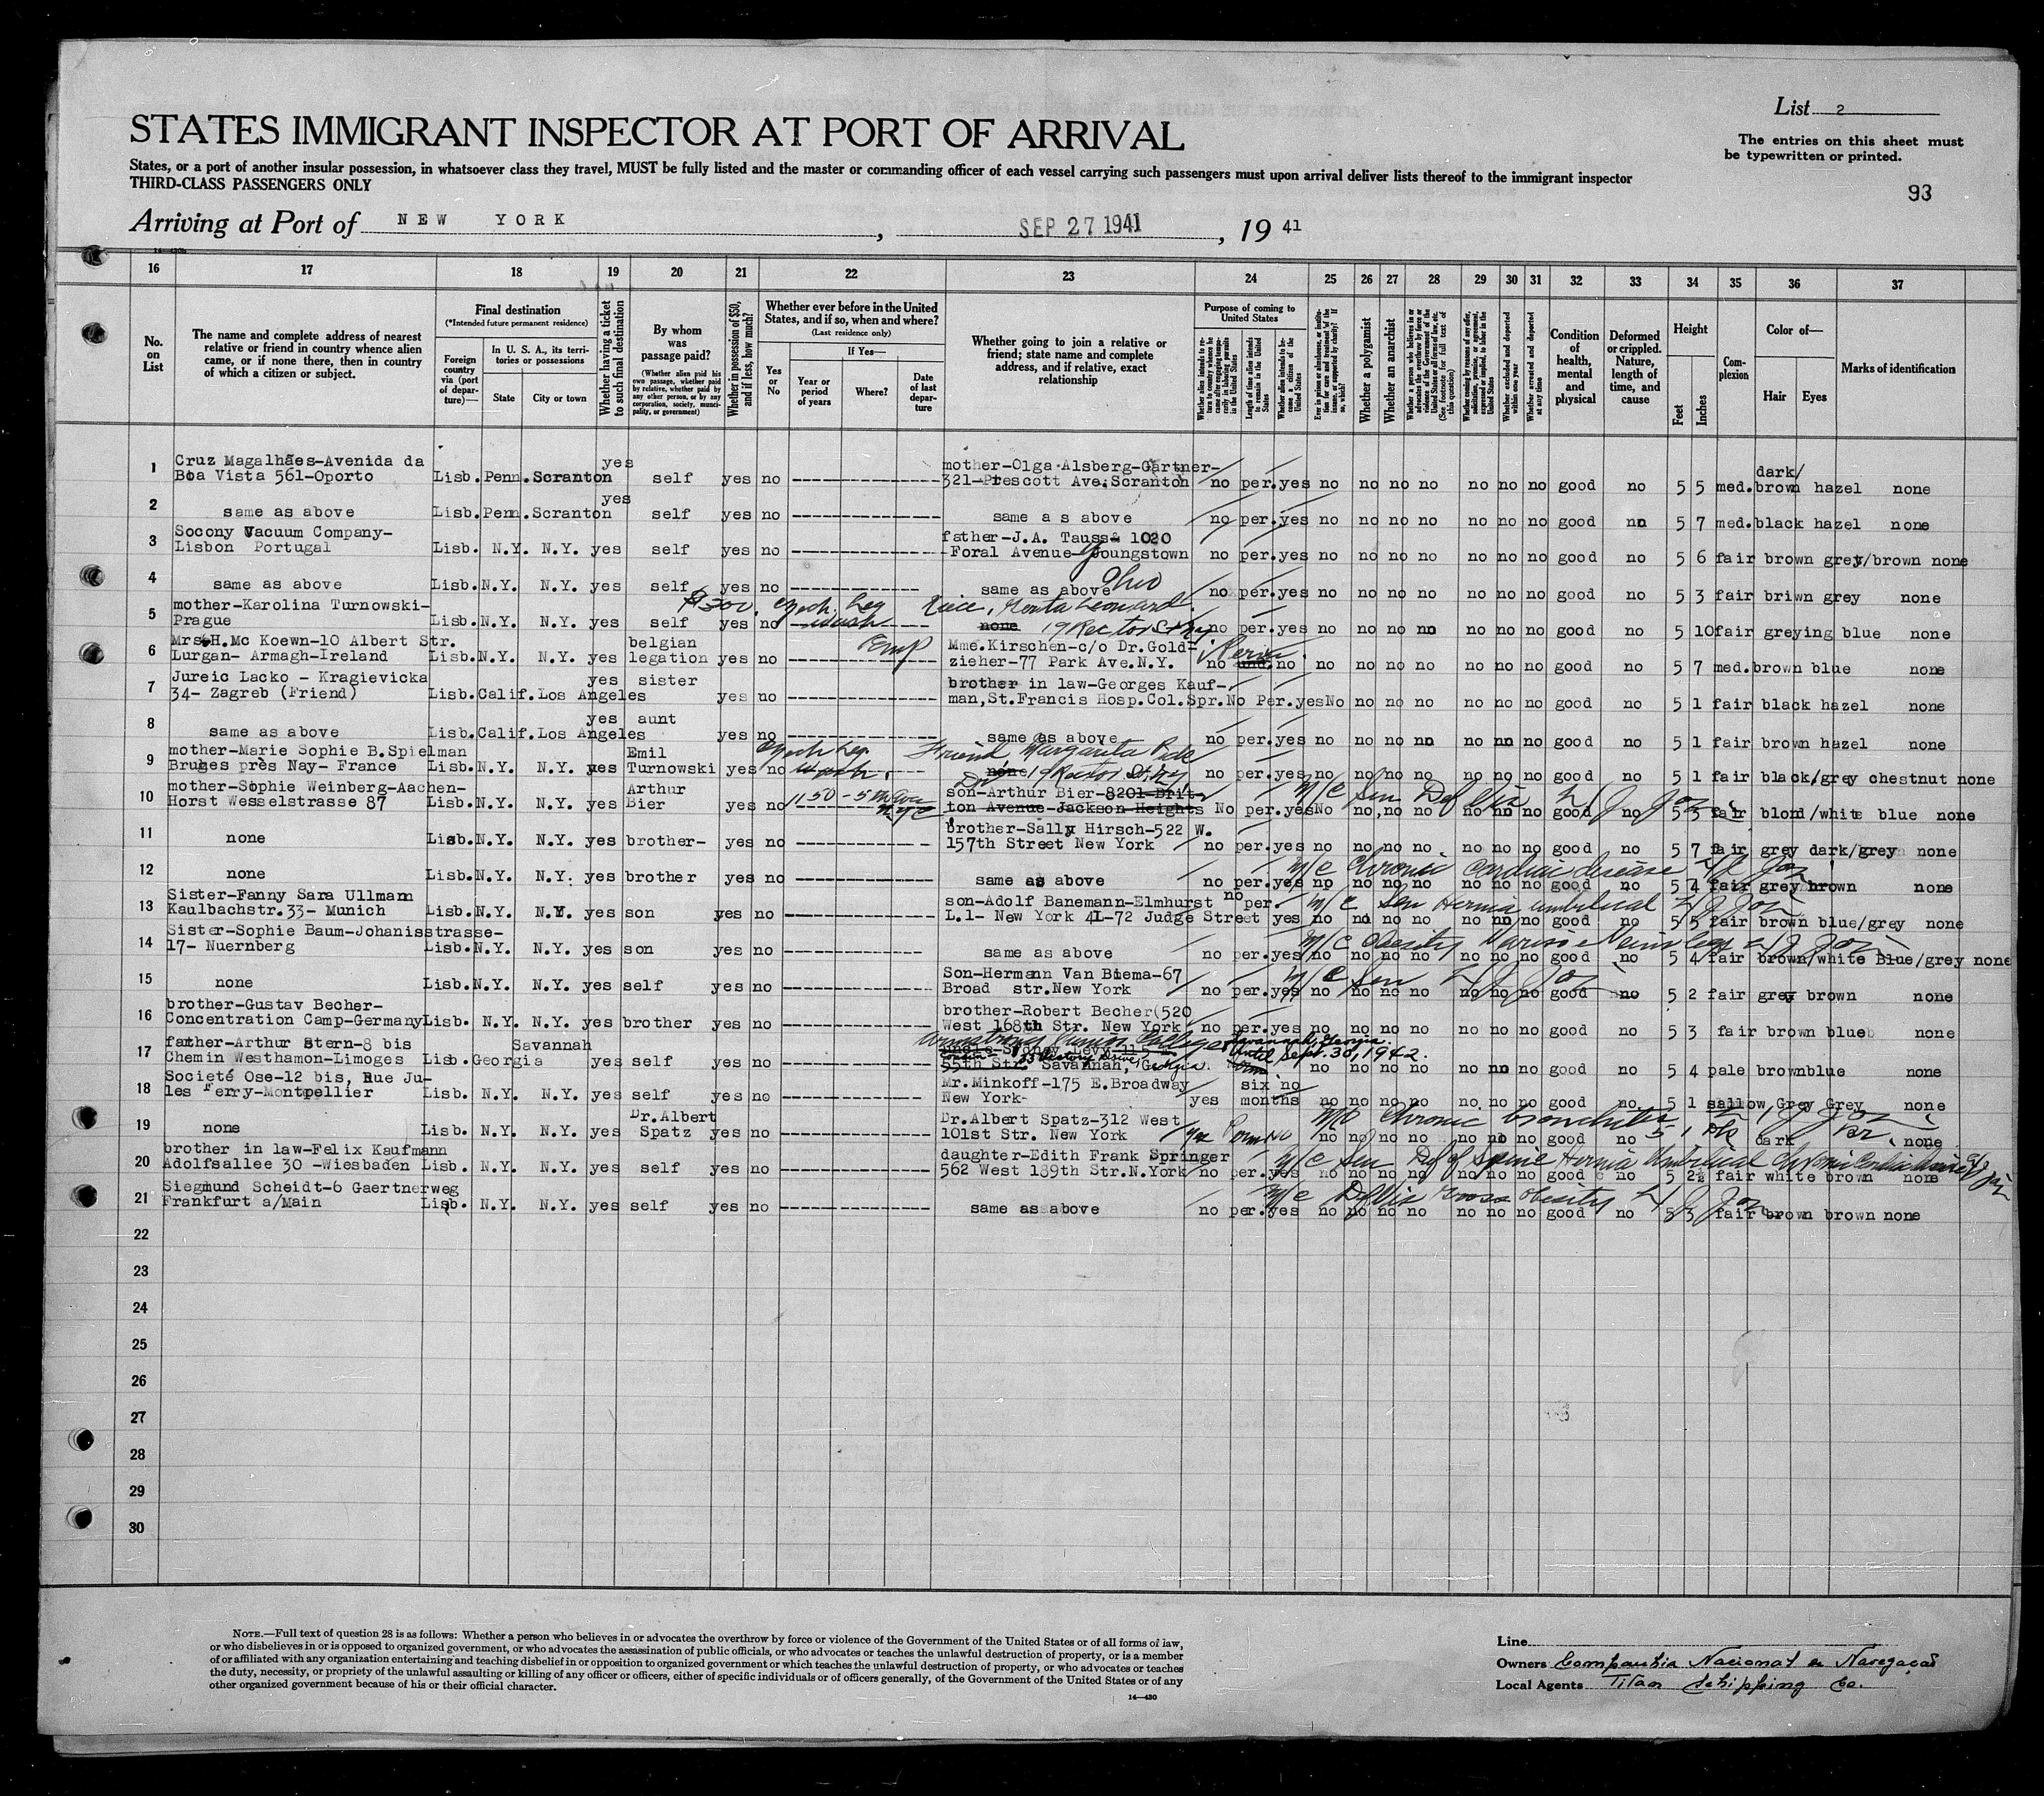 List 2
STATES IMMIGRANT INSPECTOR AT PORT OF ARRIVAL
The entries on this sheet must
be typewritten or printed.
States, or a port of another insular possession, in whatsoever class they travel, MUST be fully listed and the master or commanding officer of each vessel carrying such passengers must upon arrival deliver lists thereof to the immigrant inspector
THIRD-CLASS PASSENGERS ONLY
93
Arriving at Port of NEW YORK, SEP 27 1941, 19 41
16 17 18 19 20 21 22 23 24 25 26 27 28 29 30 31 32 33 34 35 36 37
No. on List
The name and complete address of nearest relative or friend in country whence alien came, or if none there, then in country of which a citizen or subject.
Final destination
(*Intended future permanent residence)
Foreign country via (port of departure)—
In U. S. A., its territories or possessions
State
City or town
Whether having a ticket to such final destination
By whom was passage paid?
(Whether alien paid his own passage, whether paid by relative, whether paid by any other person, or by any corporation, society, municipality, or government)
Whether in possession of $50, and if less, how much?
Whether ever before in the United States, and if so, when and where?
(Last residence only)
Yes or No
If Yes—
Year or period of years
Where?
Date of last departure
Whether going to join a relative or friend; state name and complete address, and if relative, exact relationship
Purpose of coming to United States
Length of time alien intends to remain in the United States
Whether alien intends to become a citizen of the United States
Whether a polygamist
Whether an anarchist
Whether excluded and deported within one year
Whether arrested and deported at any time
Condition of health, mental and physical
Deformed or crippled. Nature, length of time, and cause
Height
Feet
Inches
Complexion
Color of—
Hair
Eyes
Marks of identification
1 Cruz Magalhães-Avenida da yes mother-Olga Alsberg-Gartner- dark/
Boa Vista 561-Oporto Lisb. Penn. Scranton self yes no 321-Prescott Ave. Scranton no per. yes no no no no no no no good no 5 5 med. brown hazel none
2 yes
same as above Lisb. Penn. Scranton self yes no same a s above no per. yes no no no no no no no good no 5 7 med. black hazel none
3 Socony Vacuum Company- father-J.A. Tauss& 1020
Lisbon Portugal Lisb. N.Y. N.Y. yes self yes no Foral Avenue-Youngstown no per. yes no no no no no no no good no 5 6 fair brown grey/brown none
4 same as above Lisb. N.Y. N.Y. yes self yes no same as above Ohio no per. yes no no no no no no no good no 5 3 fair briwn grey none
5 mother-Karolina Turnowski- $300. Czech. Leg Niece,
Prague Lisb. N.Y. N.Y. yes self yes no Wash none 19 Rector St NY no per. yes no no no no no no no good no 5 10 fair greying blue none
6 Mrs H. Mc Koewn-10 Albert Str. belgian Temp Mme. Kirschen-c/o Dr. Gold-
Lurgan- Armagh-Ireland Lisb. N.Y. N.Y. yes legation yes no zieher-77 Park Ave. N.Y. no und. no no no no no no no no good no 5 7 med. brown blue none
7 Jureic Lacko - Kragievicka yes sister brother in law-Georges Kauf-
34- Zagreb (Friend) Lisb. Calif. Los Angeles yes no man, St. Francis Hosp. Col. Spr. No Per. yes No no no no no no no good no 5 1 fair black hazel none
8 yes aunt
same as above Lisb. Calif. Los Angeles yes no same as above no per. yes no no no no no no no good no 5 1 fair brown hazel none
9 mother-Marie Sophie B. Spielman Emil Czech Leg. Friend Margareta
Bruges près Nay- France Lisb. N.Y. N.Y. yes Turnowski yes no Wash. none 19 Rector St. NY no per. yes no no no no no no no good no 5 1 fair black/grey chestnut none
10 mother-Sophie Weinberg-Aachen- Arthur 1150 - 5 th Ave NYC son-Arthur Bier-8201-Brit- m/c Sen
Horst Wesselstrasse 87 Lisb. N.Y. N.Y. yes Bier yes no ton Avenue-Jackson Heights No per. yes No no no no no no no good no 5 3 fair blond/white blue none
11 brother-Sally Hirsch-522 W.
none Lisb. N.Y. N.Y. yes brother- yes no 157th Street New York no per. yes no no no no no no no good no 5 7 fair grey dark/grey none
12 m/c Chronic Cardiac disease
none Lisb. N.Y. N.Y. yes brother yes no same as above no per. yes no no no no no no no good no 5 4 fair grey brown none
13 Sister-Fanny Sara Ullmann son-Adolf Banemann-Elmhurst no per. m/c Sen Hernia umbilical
Kaulbachstr. 33- Munich Lisb. N.Y. N.Y. yes son yes no L.I- New York 41-72 Judge Street yes no no no no no no no good no 5 5 fair brown blue/grey none
14 Sister-Sophie Baum-Johanisstrasse- m/c Obesity Varicose Veins legs
17- Nuernberg Lisb. N.Y. N.Y. yes son yes no same as above no per. yes no no no no no no no good no 5 4 fair brown/white Blue/grey none
15 Son-Hermann Van Biema-67 m/c Sen
none Lisb. N.Y. N.Y. yes self yes no Broad str. New York no per. yes no no no no no no no good no 5 2 fair grey brown none
16 brother-Gustav Becher- brother-Robert Becher(520
Concentration Camp-Germany Lisb. N.Y. N.Y. yes brother yes no West 168th Str. New York no per. yes no no no no no no no good no 5 3 fair brown blue none
17 father-Arthur Stern-8 bis Savannah Armstrong Junior College Savannah, Georgia.
Chemin Westhamon-Limoges Lisb. Georgia yes self yes no 55th Str. Savannah, Georgia. Until Sept. 30, 1942. no no no no no no no good no 5 4 pale brown blue none
18 Societé Ose-12 bis, Rue Ju- Mr. Minkoff-175 E. Broadway six no
les Ferry-Montpellier Lisb. N.Y. N.Y. yes self yes no New York- yes months no no no no no no no good no 5 1 sallow Grey Grey none
19 Dr. Albert Dr. Albert Spatz-312 West m/c Chronic bronchitis
none Lisb. N.Y. N.Y. yes Spatz yes no 101st Str. New York yes No no no no no no no no good no 5 1 dark Br. none
20 brother in law-Felix Kaufmann daughter-Edith Frank Springer m/c Sen Def of Spine Hernia Umbilical Chronic Cardiac disease
Adolfsallee 30 -Wiesbaden Lisb. N.Y. N.Y. yes self yes no 562 West 189th Str. N.York no per. yes no no no no no no no good no 5 2½ fair white brown none
21 Siegmund Scheidt-6 Gaertnerweg m/c Gross obesity
Frankfurt a/Main Lisb. N.Y. N.Y. yes self yes no same as above no per. yes no no no no no no no good no 5 3 fair brown brown none
22
23
24
25
26
27
28
29
30
NOTE.—Full text of question 28 is as follows: Whether a person who believes in or advocates the overthrow by force or violence of the Government of the United States or of all forms of law,
or who disbelieves in or is opposed to organized government, or who advocates the assassination of public officials, or who advocates or teaches the unlawful destruction of property, or is a member
of or affiliated with any organization entertaining and teaching disbelief in or opposition to organized government or which teaches the unlawful destruction of property, or who advocates or teaches
the duty, necessity, or propriety of the unlawful assaulting or killing of any officer or officers, either of specific individuals or of officers generally, of the Government of the United States or of any
other organized government because of his or their official character.
14—430
Line
Owners Companhia Nacional de Navegaçao
Local Agents Titan Schipping Co.